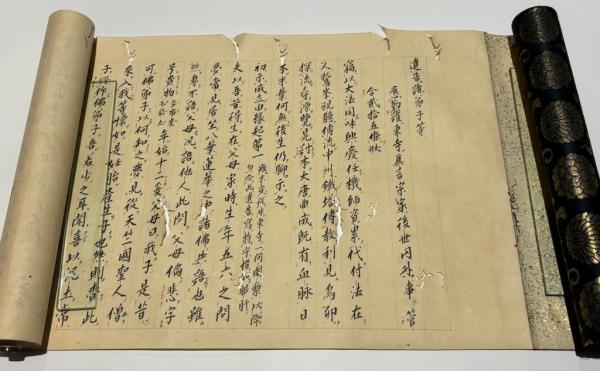 遺告諸弟子等
應勤護東寺真言宗家後世内外事管
合貳拾五條狀
竊以大法同味興廢任機師資累代付法在
人鷲峯視聽傳流中州鐵塔傳教利見烏卯
探流尋源覺見討本大唐曲成既有血脉日
本末葉何無後生仍聊示之
初示成立由緣起第一
夫以吾昔得生在父母家時生年五六之間
夢常見居坐八葉蓮華之中諸佛共語也雖
然專不語父母況語他人此間父母偏悲字
号貴物 年始十二爰父母曰我子是昔
可佛弟子以何知之夢見從天竺國聖人僧
來入我等懷如是妊胎產生子也然則齎此
子將作佛弟子吾若少之耳聞喜以泥土常